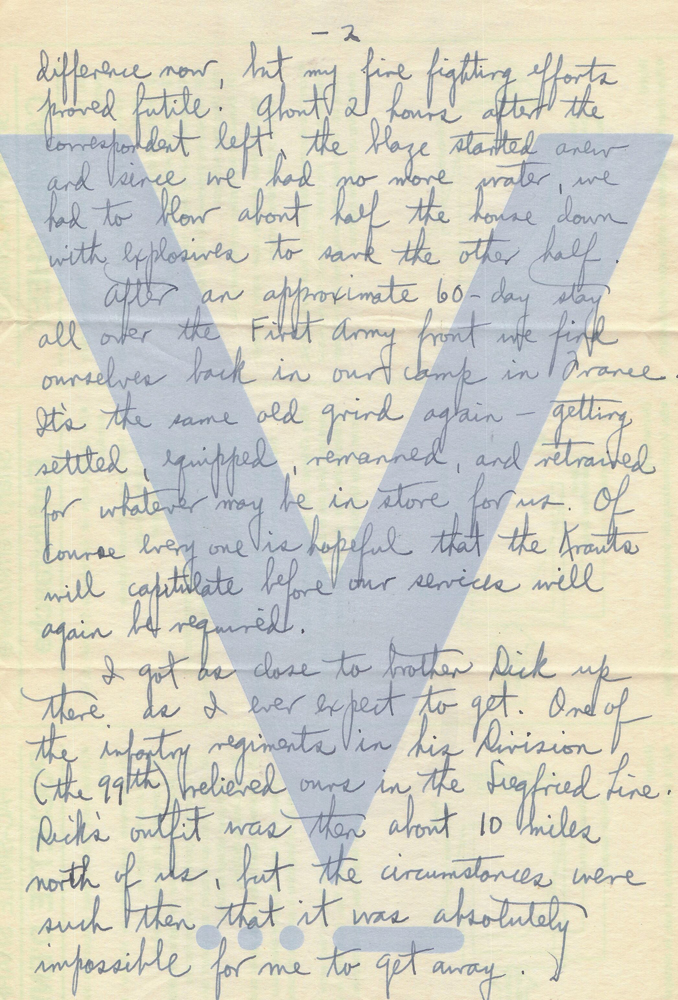 - 2
difference now, but my fire fighting efforts
proved futile. About 2 hours after the
correspondent left, the blaze started anew
and since we had no more water, we
had to blow about half the house down
with explosives to save the other half.
After an approximate 60-day stay
all over the First Army front we find
ourselves back in our camp in France.
It's the same old grind again - getting
settled, equipped, remanned, and retrained
for whatever may be in store for us. Of
course every one is hopeful that the Krauts
will capitulate before our services will
again be required.
I got as close to brother Dick up
there as I ever expect to get. One of
the infantry regiments in his Division
(the 99th) relieved ours in the Siegfried Line.
Dick's outfit was then about 10 miles
north of us, but the circumstances were
such then that it was absolutely
impossible for me to get away.